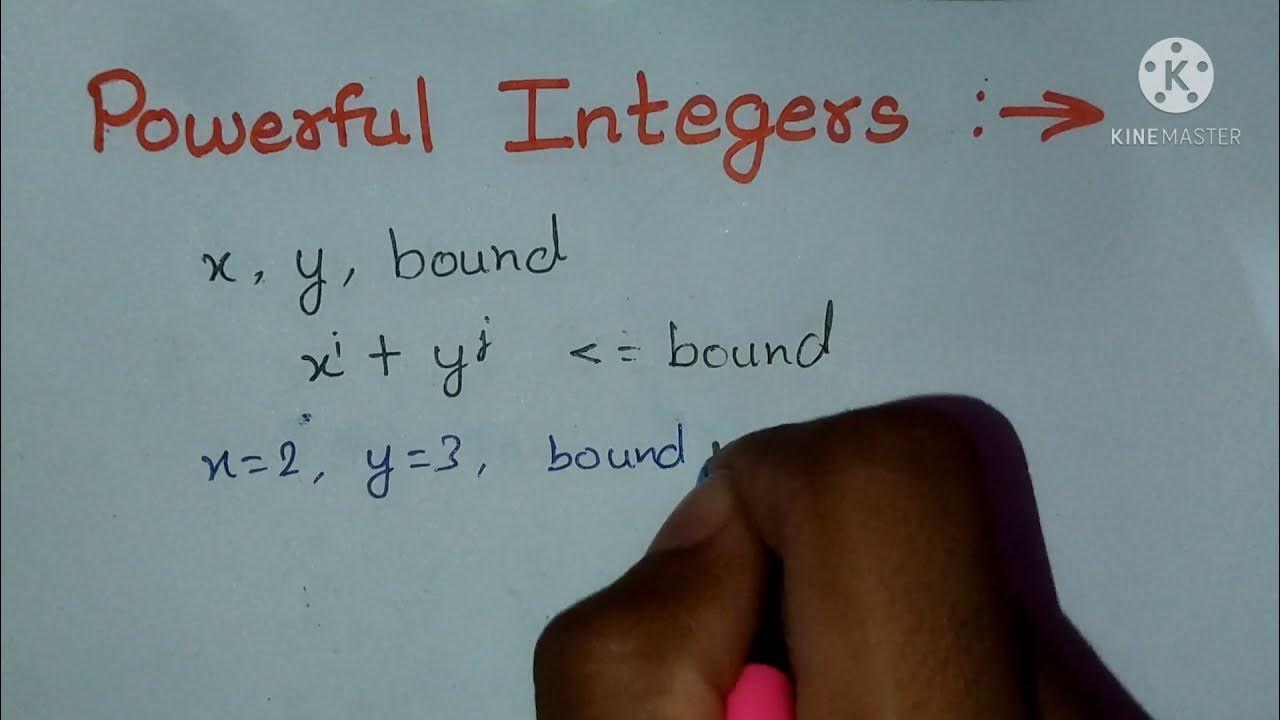 Powerful Integers :→
KINEMASTER
x, y, bound
xⁱ + yʲ <= bound
x=2, y=3, bound